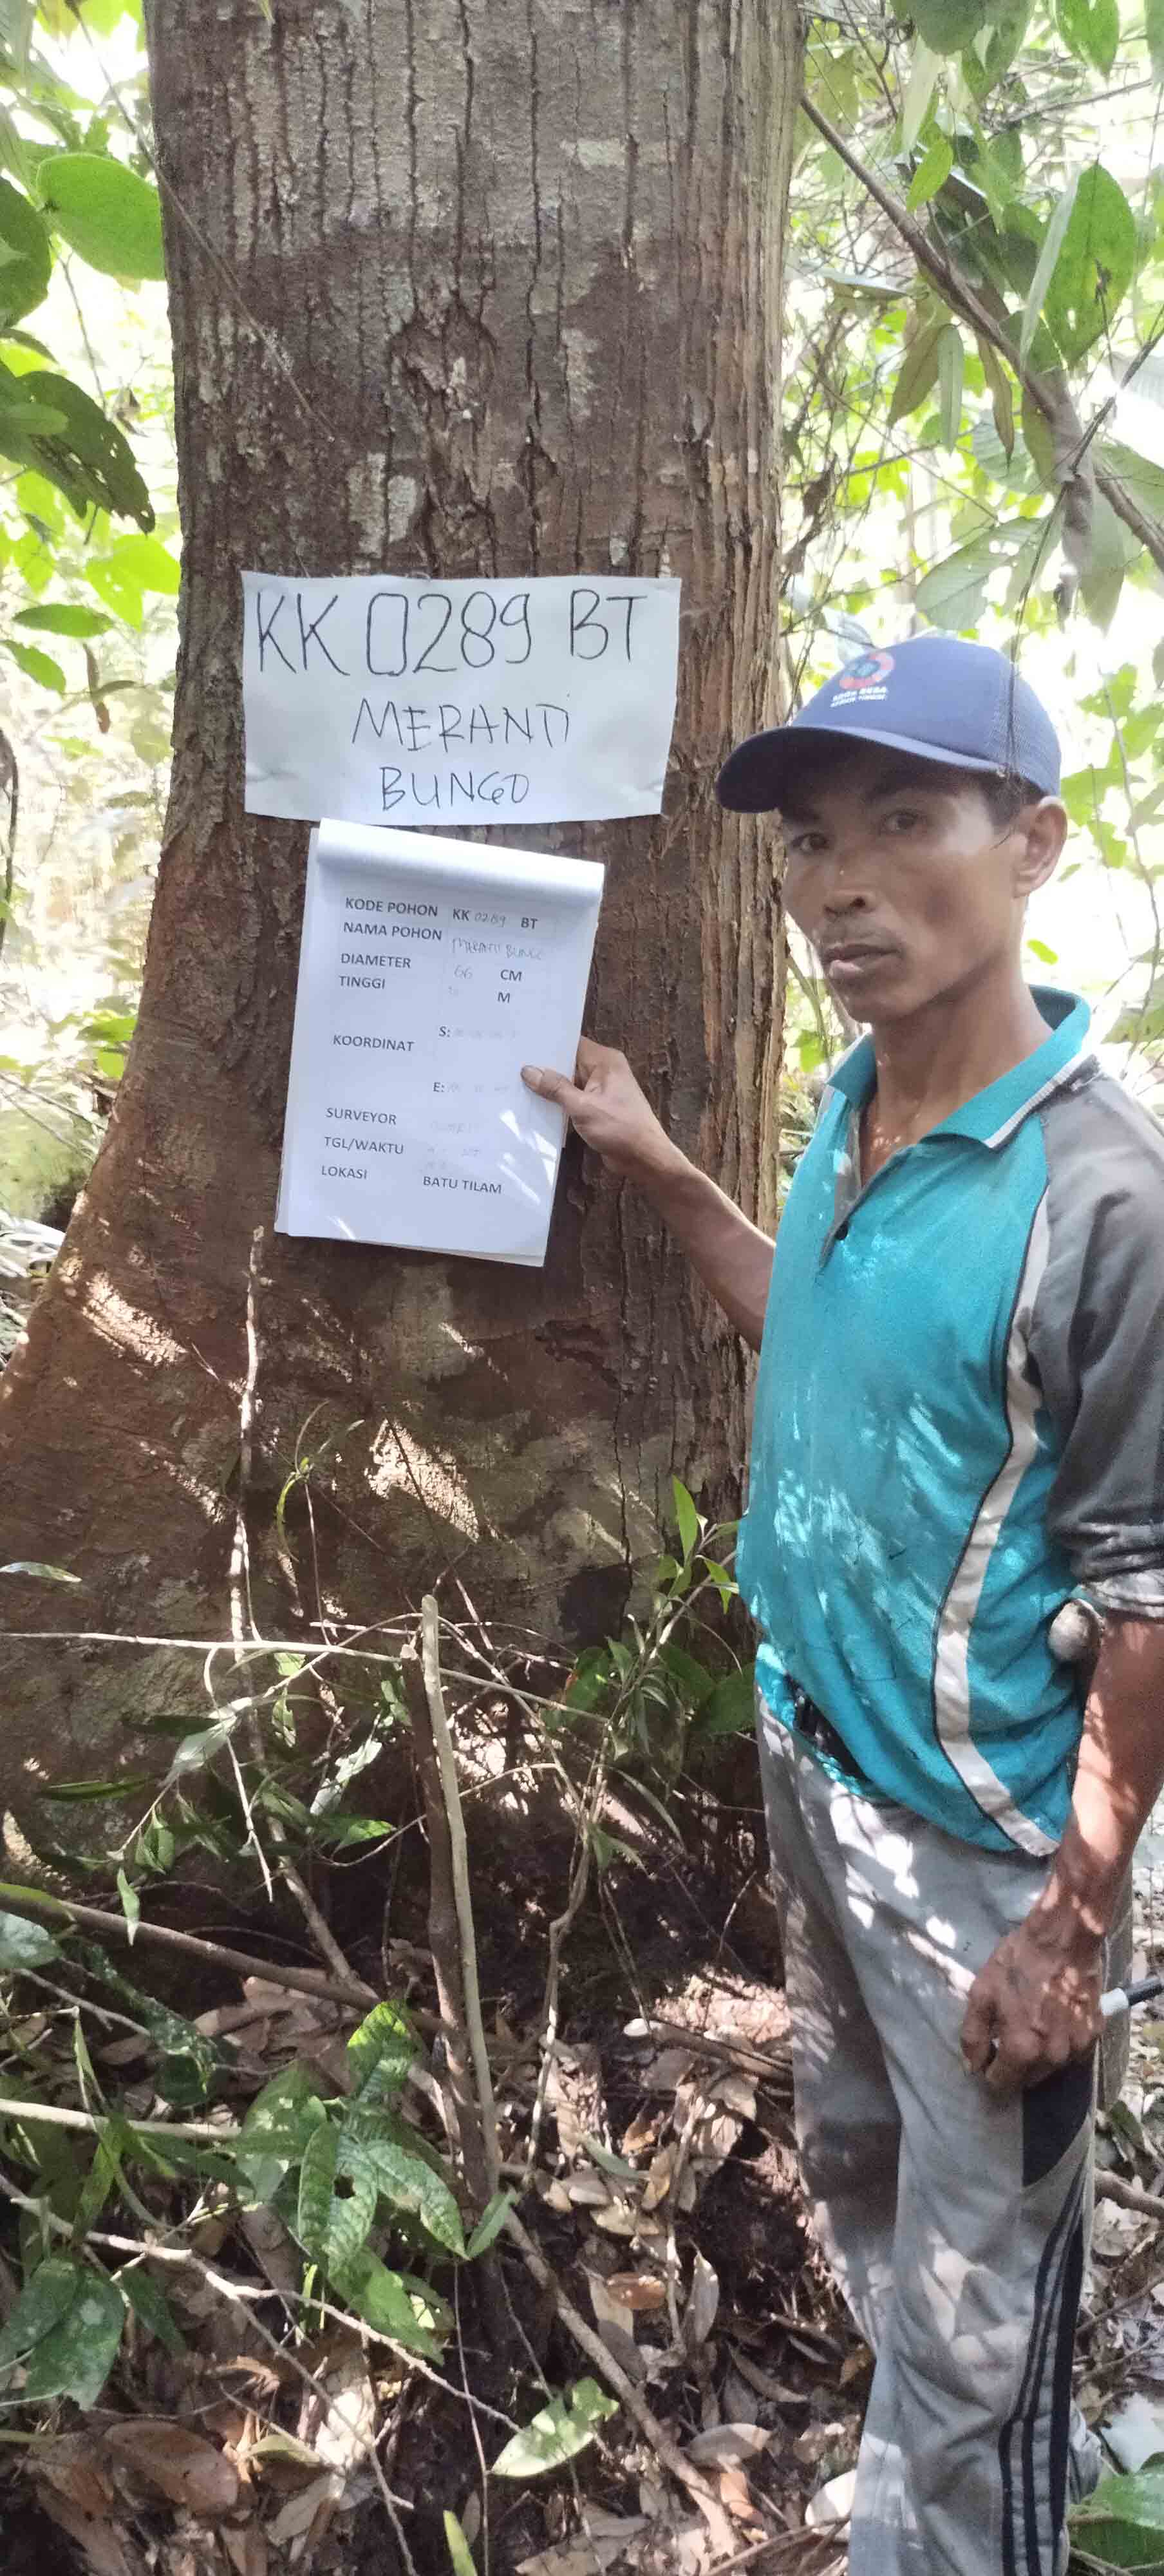 KK 0289 BT
MERANTI
BUNGO
KODE POHON KK 0289 BT
NAMA POHON MERANTI BUNGO
DIAMETER 66 CM
TINGGI M
KOORDINAT
S:
E:
SURVEYOR
TGL/WAKTU
LOKASI BATU TILAM